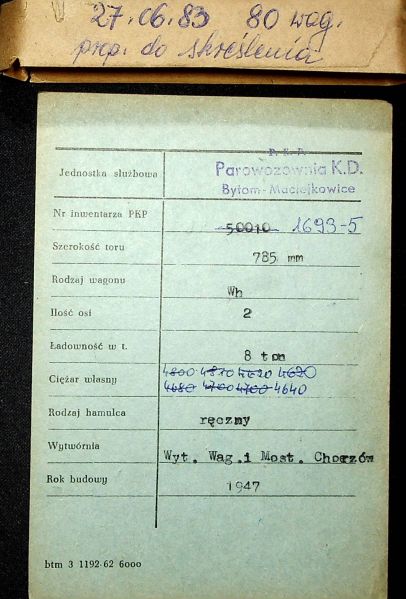 27.06.83 80 wag.
prop. do skreślenia
P. K. P.
Jednostka służbowa Parowozownia K.D.
Bytom-Maciejkowice
Nr inwentarza PKP 50010 1693-5
Szerokość toru 785 mm
Rodzaj wagonu Wh
Ilość osi 2
Ładowność w t. 8 ton
4800 4810 4620 4690
Ciężar własny 4680 4700 4700 4640
Rodzaj hamulca ręczny
Wytwórnia Wyt. Wag.i Most. Chorzów
Rok budowy 1947
btm 3 1192-62 6000